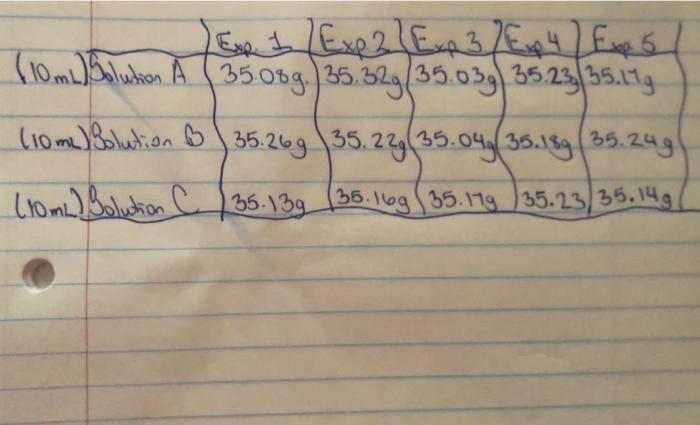 Exp. 1 Exp 2 Exp 3 Exp 4 Exp. 5
(10mL) Solution A 35.08g. 35.32g 35.03g 35.23g 35.17g
(10mL) Solution B 35.26g 35.22g 35.04g 35.18g 35.24g
(10mL) Solution C 35.13g 35.16g 35.17g 35.23 35.14g